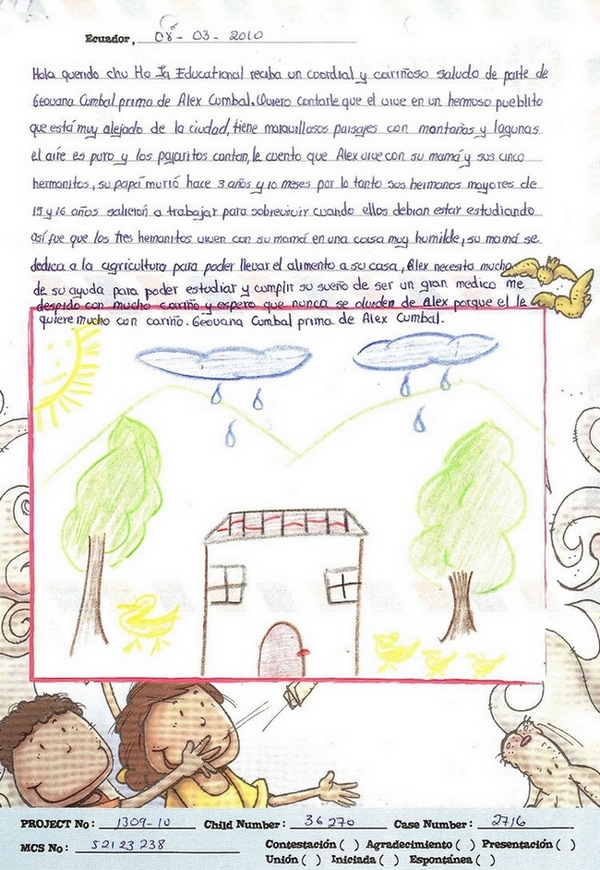 Ecuador, 08 - 03 - 2010
Hola querido chu Ho Iq Educational reciba un coordial y cariñoso saludo de parte de
Geovana Cumbal prima de Alex Cumbal. Quiero contarle que el vive en un hermoso pueblito
que está muy alejado de la ciudad, tiene maravillosos paisajes con montañas y lagunas
el aire es puro y los pajaritos cantan, le cuento que Alex vive con su mamá y sus cinco
hermanitos, su papá murió hace 3 años y 10 meses por lo tanto sus hermanos mayores de
15 y 16 años salieron a trabajar para sobrevivir cuando ellos debian estar estudiando
así fue que los tres hermanitos viven con su mamá en una casa muy humilde, su mamá se
dedica a la agricultura para poder llevar el alimento a su casa, Alex necesita mucho
de su ayuda para poder estudiar y cumplir su sueño de ser un gran medico me
despido con mucho cariño y espero que nunca se olviden de Alex porque el le
quiere mucho con cariño. Geovana Cumbal prima de Alex Cumbal.
PROJECT No : 1309-10 Child Number : 36270 Case Number : 2716
MCS No : 52123238 Contestación ( ) Agradecimiento ( ) Presentación ( )
Unión ( ) Iniciada ( ) Espontánea ( )